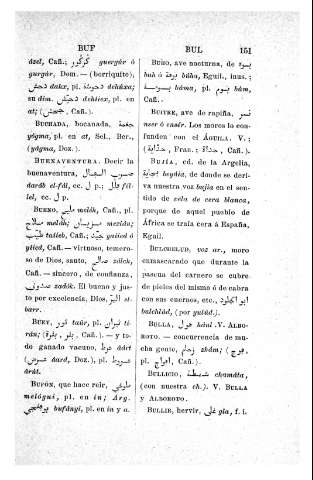 BUF
BUL
151
ázel, Cañ.; كركور yuergúr ó
gurgúr, Dom. — (borriquito),
dahx, pl. dehúxa;
su dim. دحيش dehéiex, pl. en
at; (جحيش, Cañ.).
BUCHADA, bocanada, جغمة
yógma, pl. en at, Sel., Ber.,
(yágma, Doz.).
BUENAVENTURA. Decir la
buenaventura, ضرب الفال
daráb el-fál, cc. ل p.;
lel, cc. ل p.
BUENO, مليح meléh, Cañ., pl.
ملاح meláh; مزيان mezián;
طيب taiieb, Cañ.; جيد yeiied ó
yiied, Cañ. — virtuoso, temero-
so de Dios, santo, صالح záleh,
Cañ. — sincero, de confianza,
zadúk. El bueno y jus-
to por excelencia, Dios, البر el-
barr.
BUEY, ثور taúr, pl. تيران ti-
rán; (بقري, Cañ.). — y to-
do ganado vacuno,
(عرض áard, Doz.), pl.
árát.
BUFÓN, que hace reír,
melógui, pl. en in; Arg.
bufányi, pl. en in y a.
BUHO, ave nocturna, de بوه
buh ó بوهة búha, Eguil., inus.;
búma, pl. بوم búm,
Cañ.
BUITRE, ave de rapiña, نسر
nser ó enaér. Los moros lo con-
funden con el ÁGUILA. V.;
Fran.; حداة, Cañ.).
BUJÍA, cd. de la Argelia,
بجاية beyáia, de donde se deri-
va nuestra voz bujía en el sen-
tido de vela de cera blanca,
porque de aquel pueblo de
África se traía cera á España,
Eguil.
BULCHELUD, voz ar., moro
enmascarado que durante la
pascua del carnero se cubre
de pieles del mismo ó de cabra
con sus cuernos, etc., ابو الجلود
bulchlúd, (por yulúd.).
BULLA, هول hául. V. ALBO-
ROTO. — concurrencia de mu-
cha gente, زحام zhám; (فوج,
pl. افواج, Cañ.).
BULLICIO, شميطة chamáta,
(con nuestra ch.). V. BULLA
y ALBOROTO.
BULLIR, hervir, غلى gla, f. i.